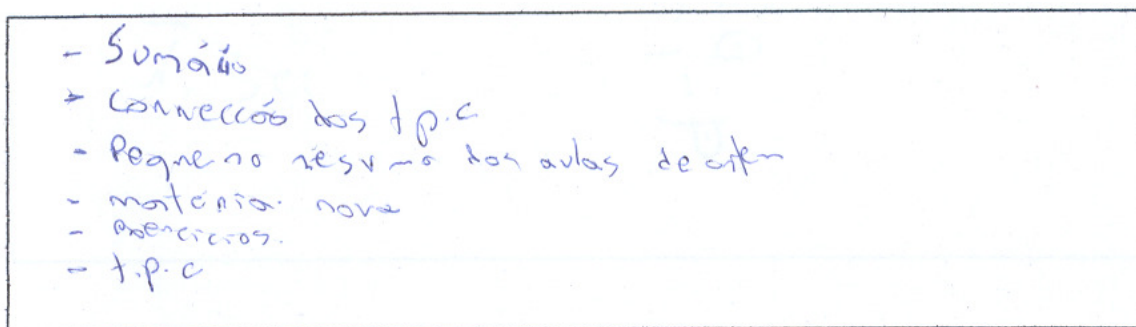 - Sumário
- Correcção dos t.p.c
- Pequeno resumo das aulas de ontem
- matéria nova
- exercícios.
- t.p.c